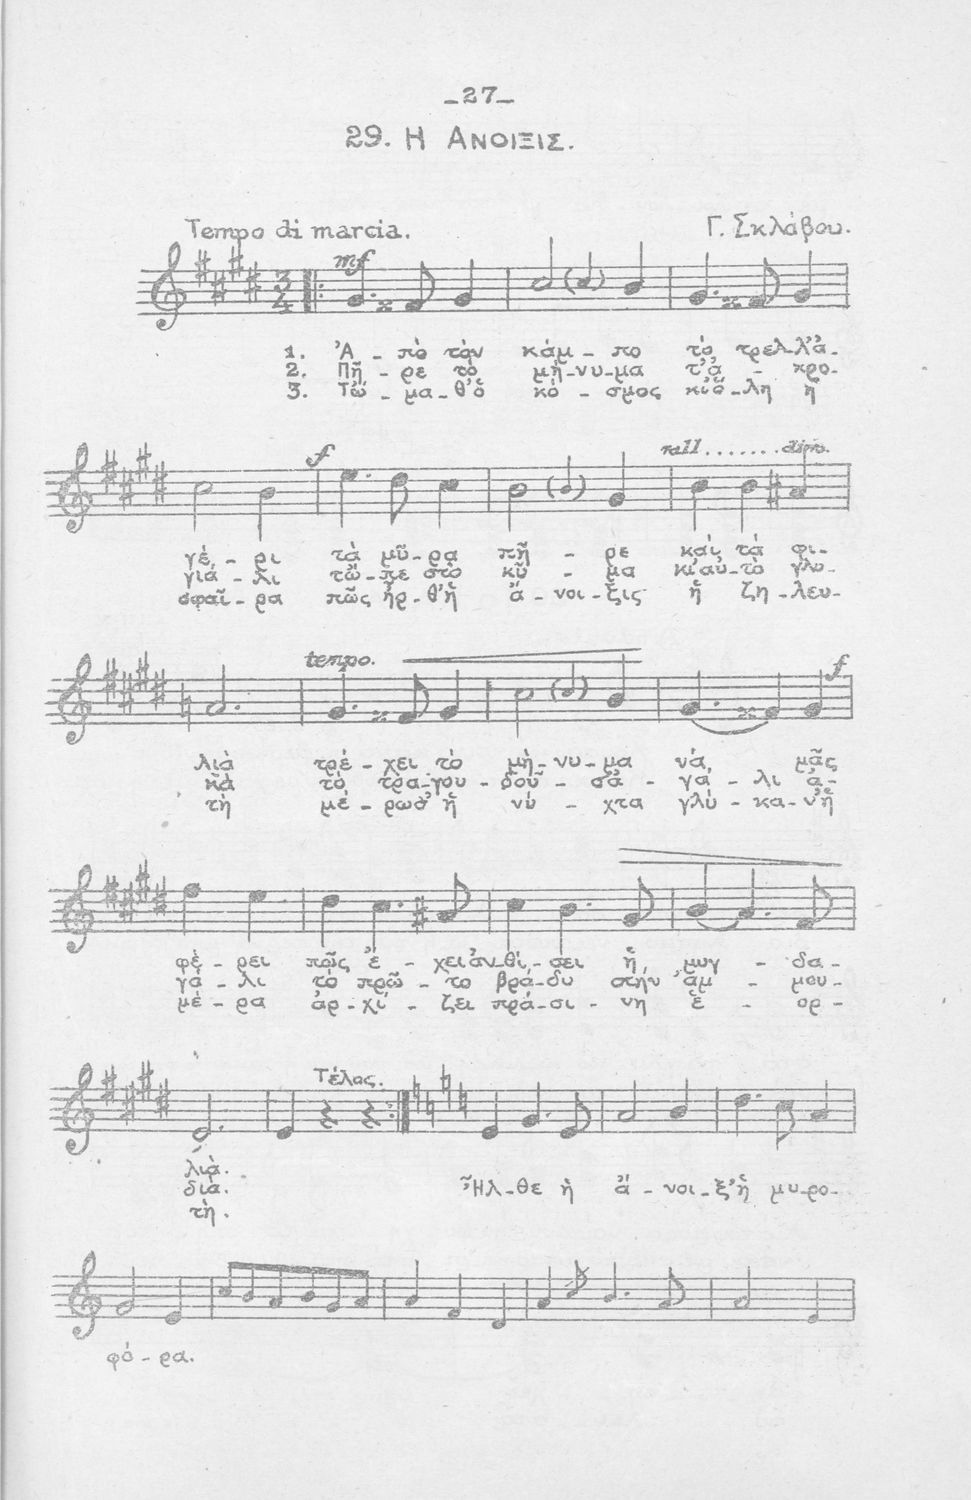 _27_
29. Η ΑΝΟΙΞΙΣ.
Tempo di marcia. Γ. Σκλάβου.
mf
1. Ἀ - πὸ τὸν κάμ - πο τὸ τρελ-λ'ἀ-
2. Πῆ - ρε τὸ μή-νυ-μα τ'ἀ - κρο-
3. Τώ - μα-θ'ὁ κό - σμος κι'ὅ-λη ἡ
f rall.......dim.
γέ - ρι τὰ μῦ-ρα πῆ - ρε καὶ τὰ φι-
γιά - λι τὤ-πε στὸ κῦ - μα κι'αὐ-τὸ γλυ-
σφαῖ-ρα πῶς ἦρ-θ'ἡ ἄ-νοι-ξις ἡ ζη-λευ-
tempo. f
λιὰ τρέ - χει τὸ μή-νυ-μα νά, μᾶς
κὰ τὸ τρα-γου-δοῦ-σ'ἀ - γά - λι ἀ-
τὴ μέ-ρωσ' ἡ νύ - χτα γλύ - κα-ν'ἡ
φέ - ρει πῶς ἔ - χει ἀν-θί-σει ἡ μυγ - δα-
γά - λι τὸ πρῶ - το βρά-δυ στὴν ἀμ - μου-
μέ - ρα ἀρ-χί - ζει πρά-σι - νη ἑ - ορ -
Τέλος.
λιὰ.
διὰ. Ἦλ-θε ἡ ἄ - νοι-ξ'ἡ μυ-ρο-
τὴ.
φό - ρα.